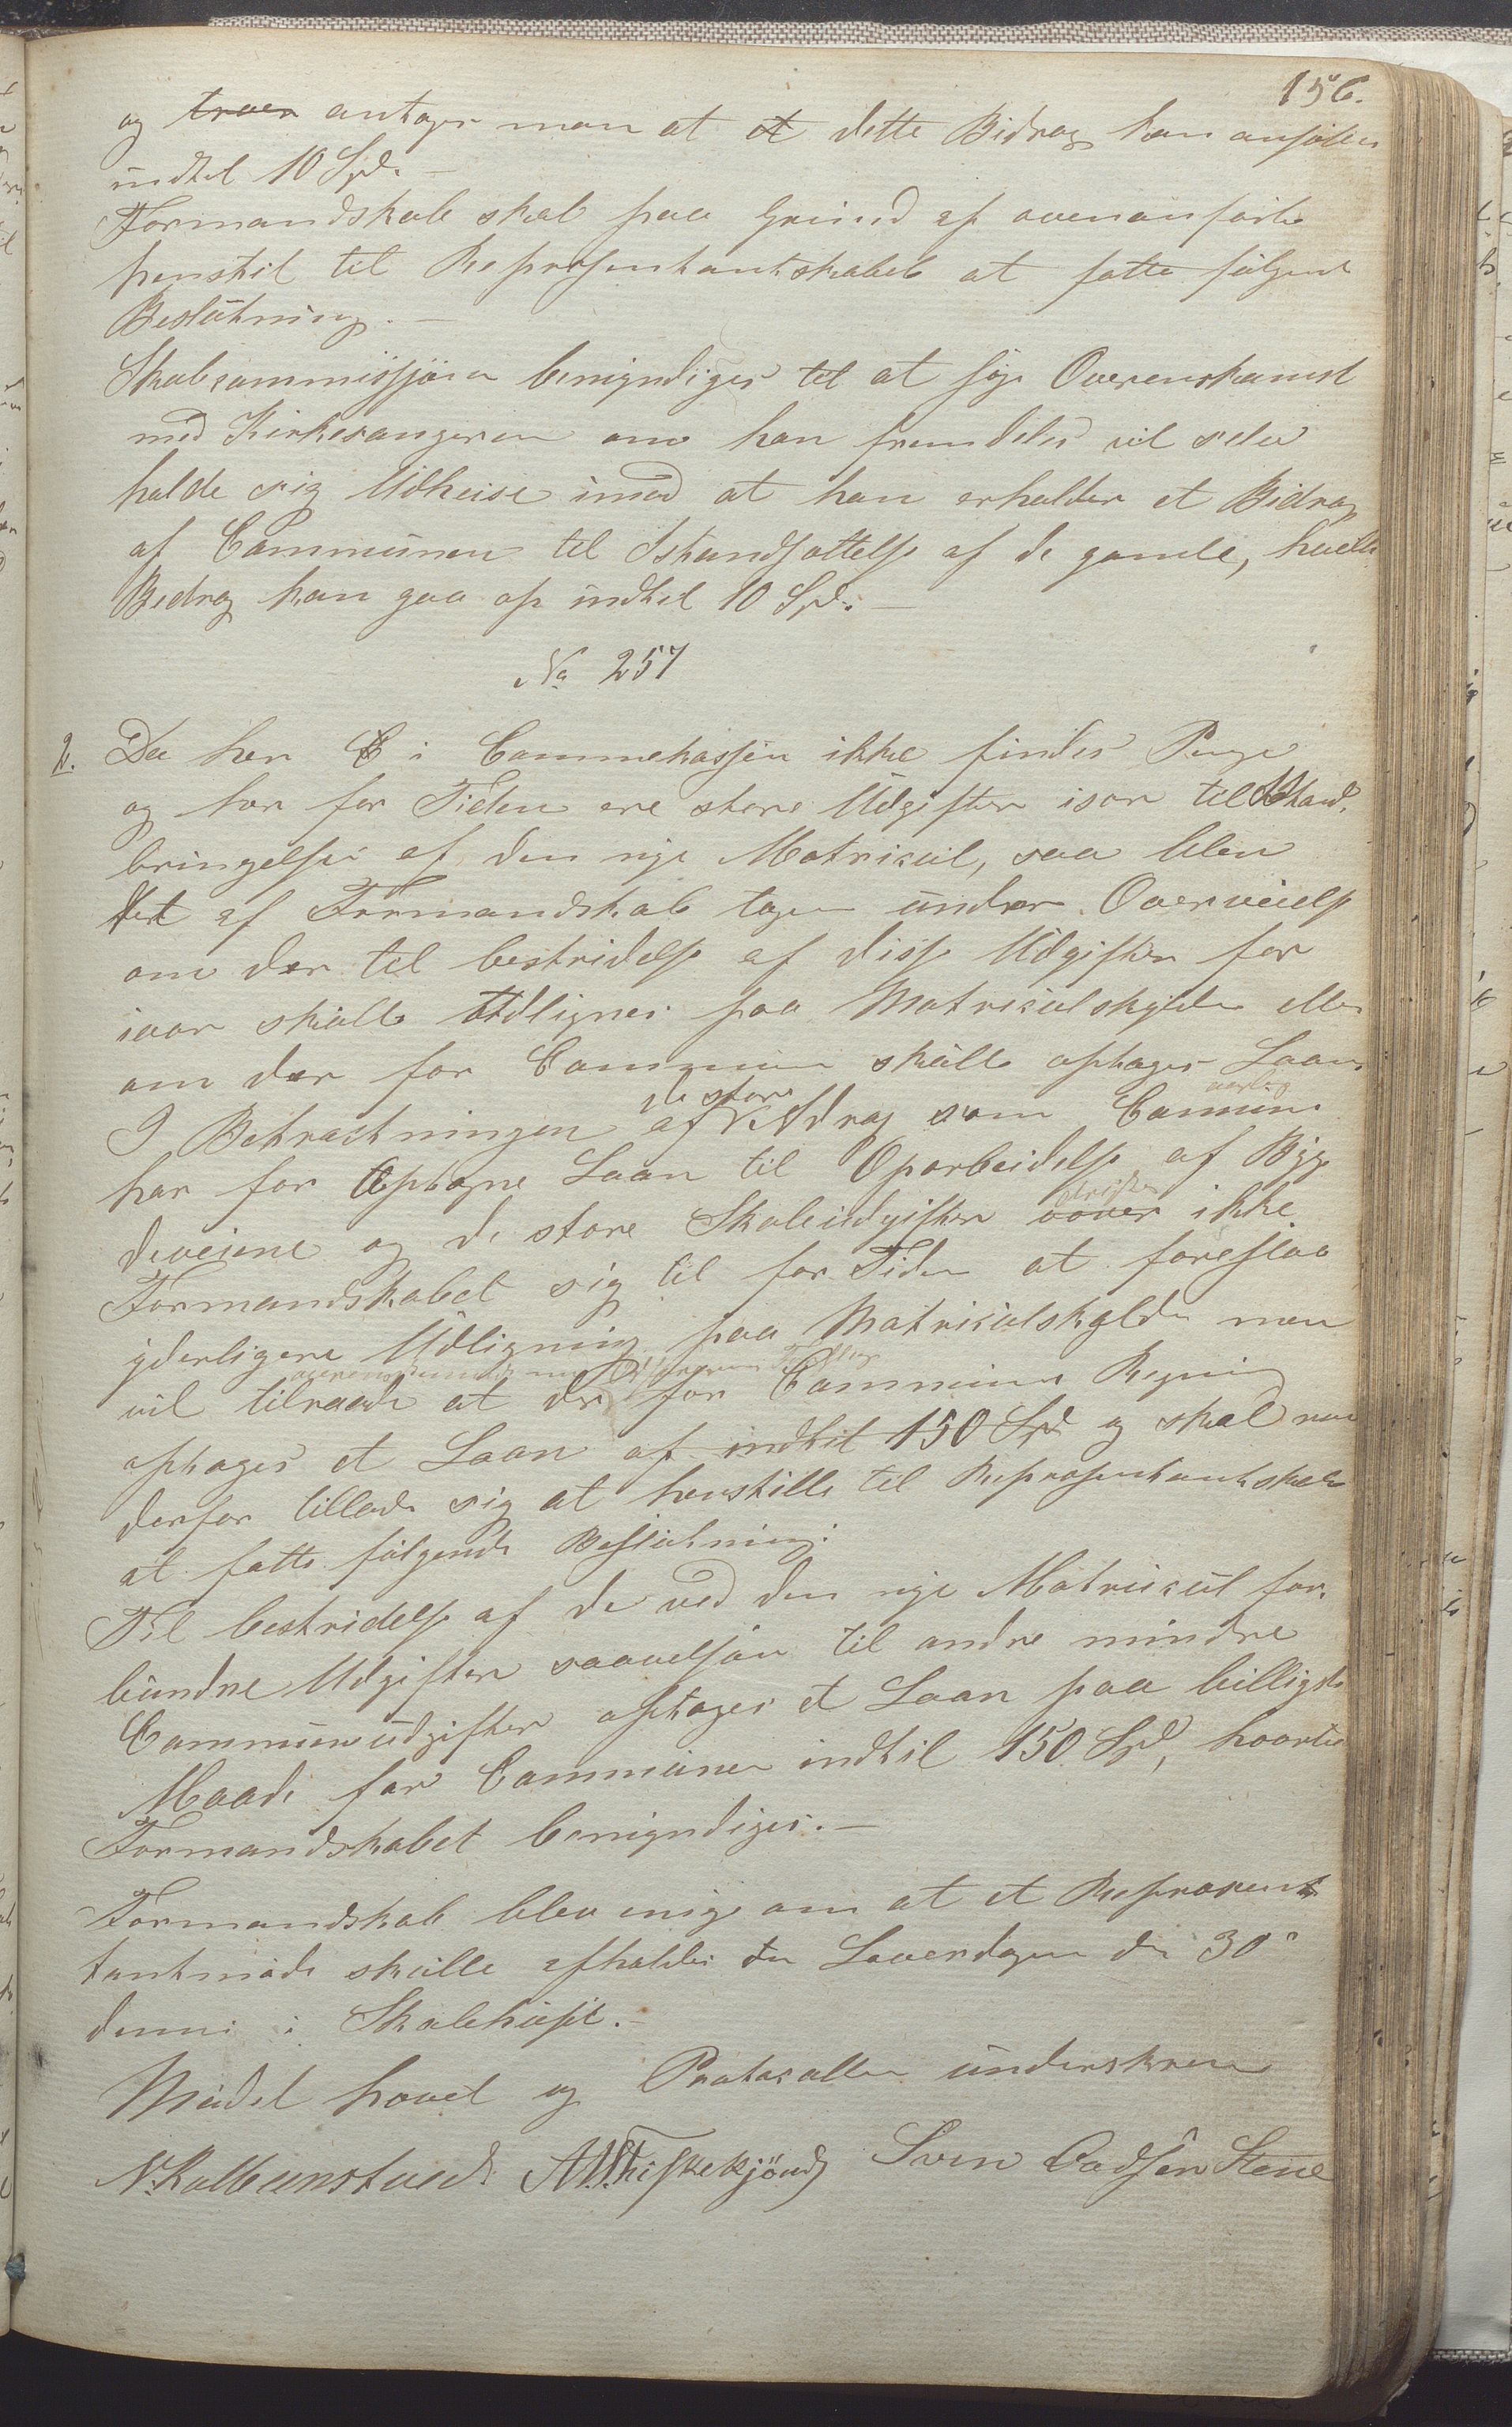 156.
og troer antager man at et dette Bidrag kan ansættes
indtil 10 Spd. —
Formandskab skal paa Grund af ovenanførte
henstil til Repræsentantskabet at fatte følgende
Beslutning. —
Skolecommissjonen bemyndiges til at søge Overenskomst
med Kirkesangeren om han fremdeles vil selv
holde sig Udhuse imod at han erholder et Bidrag
af Communen til Istandsættelse af de gamle, hvilket
Bidrag kan gaa op indtil 10 Spd. —
No 257
2. Da her C i Communekassen ikke findes Penge
og her for Tiden ere store Udgifter især til Istand-
bringelse af den nye Matrikul, saa blev
det af Formandskab tagen under Overveielse
om der til bestridelse af disse Udgifter for
iaar skulle Udlignes paa Matrikulskylden eller
om der for Communen skulle optages Laan
de store aarlig
I Betragtningen af Afdrag som Communen
har for optagne Laan til Oparbeidelse af Byg-
drister
deveiene og de store Skoleudgifter vover ikke
Formandskabet sig til for Tiden at foreslaa
yderligere Udligning paa Matrikulskylden men
overensstemmende med
vil tilraade at der for Communens Regning
optages et Laan af indtil 150 Spd og skal man
derfor tillade sig at henstille til Repræsentantskabet
at fatte følgende Beslutning:
Til bestridelse af de ved den nye Matrikul for-
bundne Udgifter saavelsom til andre mindre
Communeudgifter optages et Laan paa billigste
Maade for Communen indtil 150 Spd, hvortil
Formandskabet bemyndiges. —
Formandskab blev enige om at et Repræsen-
tantmøde skulle afholdes den Løverdagen den 30
dennes i Skolehuset. —
Mødet hævet og Protocollen underskreven
Sven Oadsen Stene